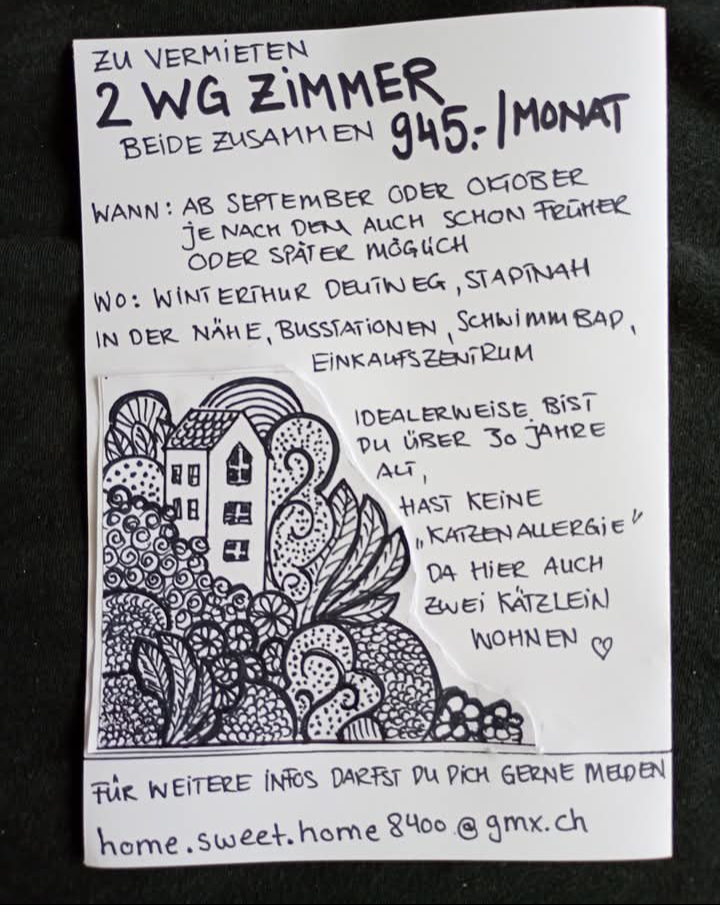 ZU VERMIETEN
2 WG ZIMMER
BEIDE ZUSAMMEN 945.-/MONAT
WANN: AB SEPTEMBER ODER OKTOBER
JE NACH DEM AUCH SCHON FRÜHER
ODER SPÄTER MÖGLICH
WO: WINTERTHUR DEUTWEG, STADTNAH
IN DER NÄHE, BUSSTATIONEN, SCHWIMMBAD,
EINKAUFSZENTRUM
IDEALERWEISE BIST
DU ÜBER 30 JAHRE
ALT,
HAST KEINE
„KATZENALLERGIE"
DA HIER AUCH
ZWEI KÄTZLEIN
WOHNEN ♡
FÜR WEITERE INFOS DARFST DU DICH GERNE MELDEN
home.sweet.home8400@gmx.ch